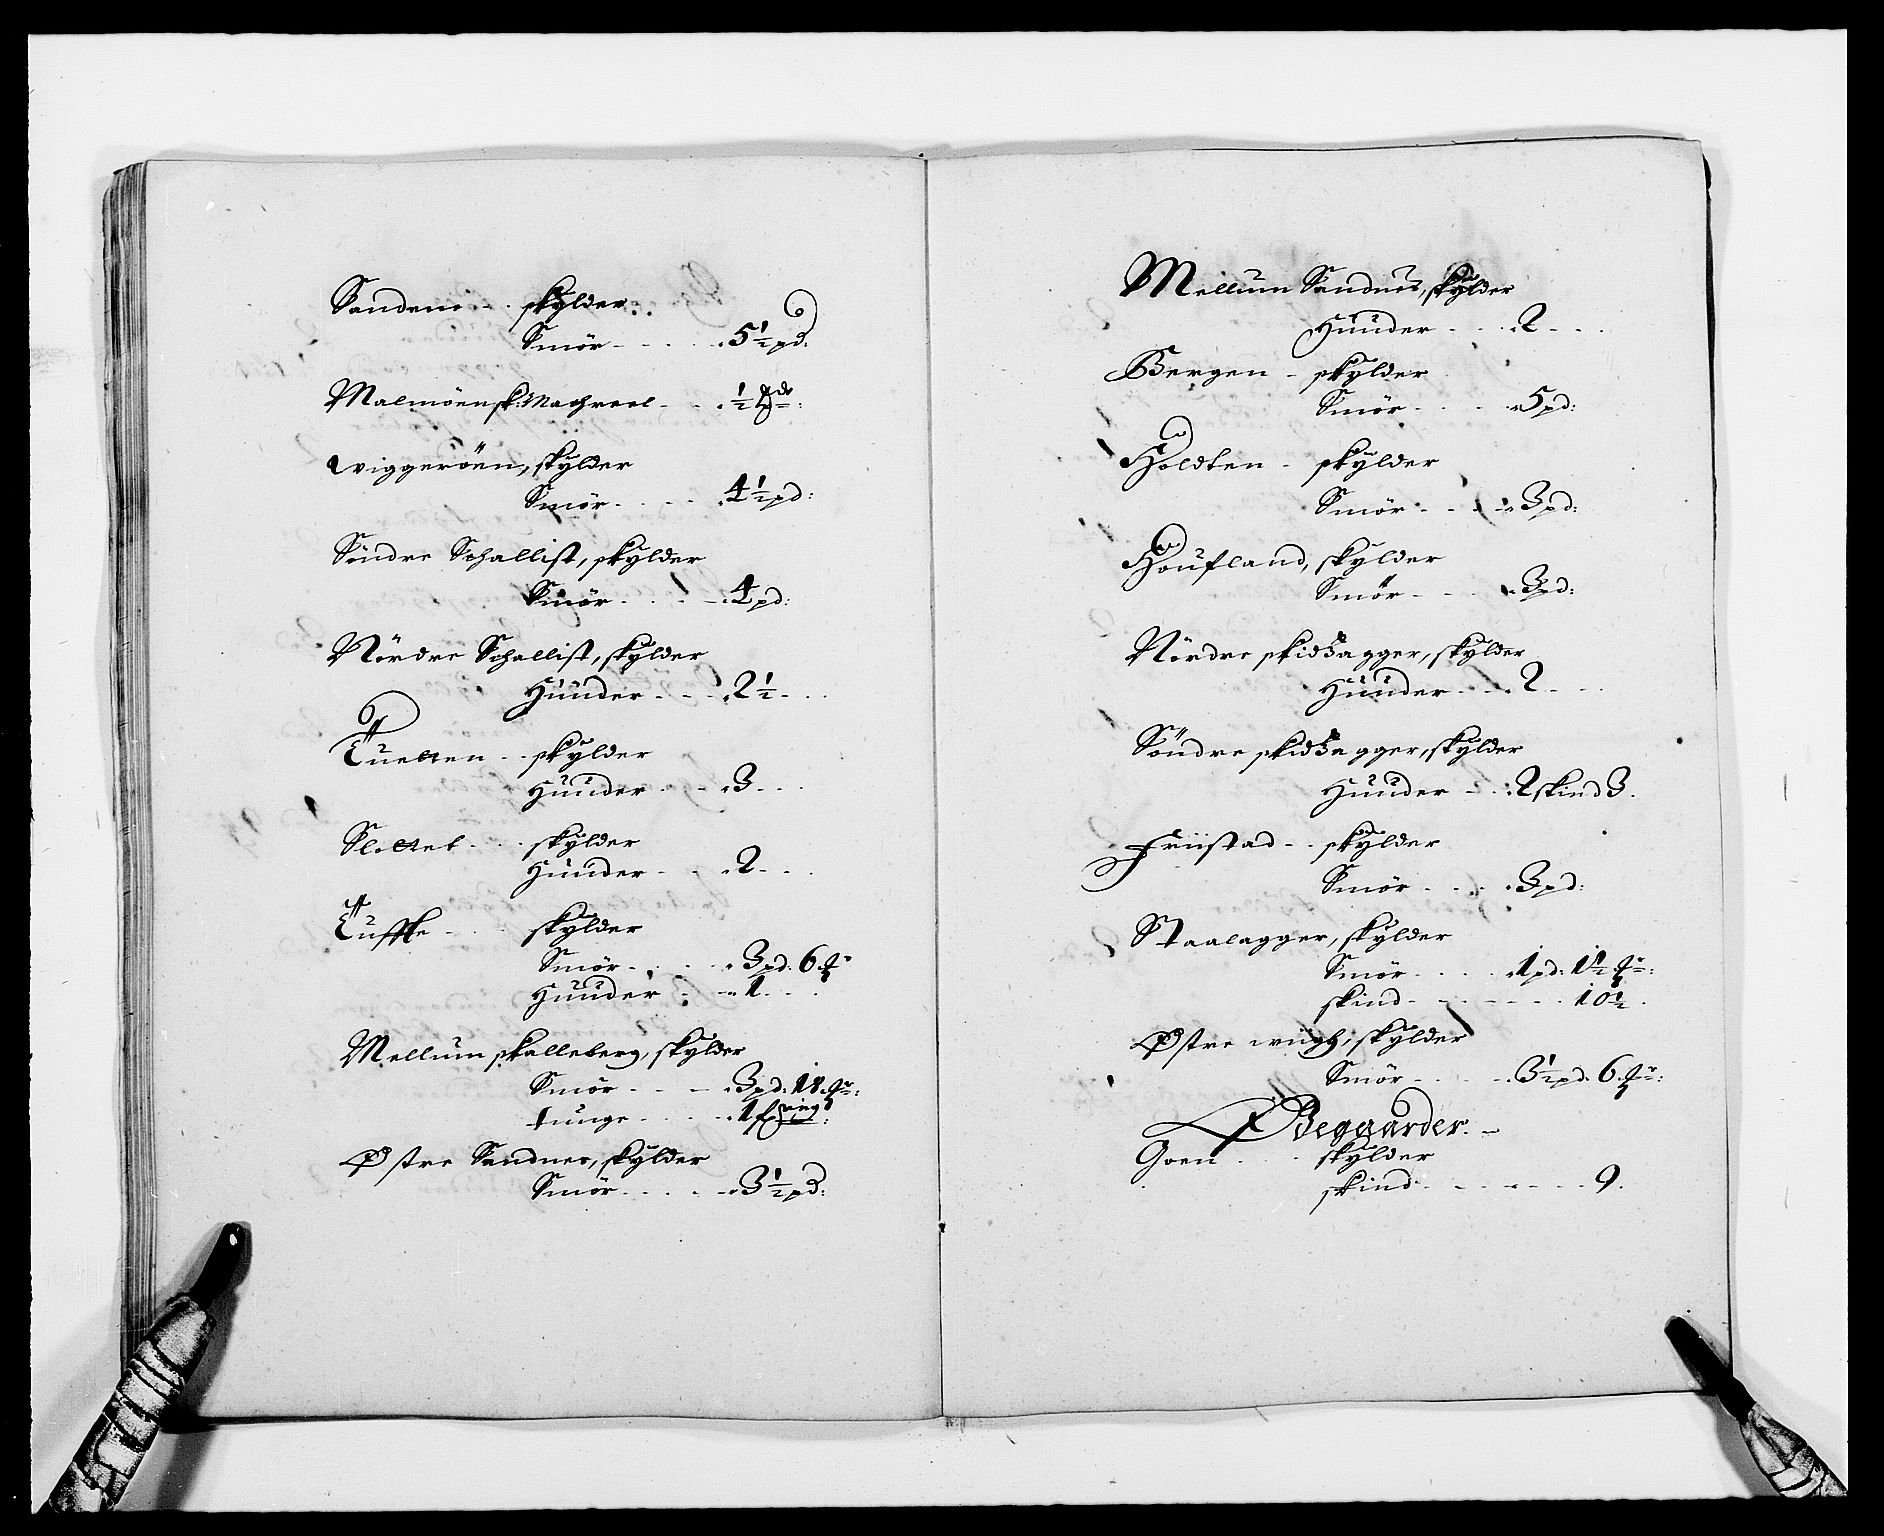 Sandene - skylder
Smör - - - 5½ pd:
Malmöen sk: Machreel - - ½
Wiggeröen, skylder
Smör - - - 4½ pd:
Söndre Schallist, skylder
Smör - - - 4 pd:
Nördre Schallist, skylder
Huuder - - - 2½ - -
Tuetten - - skylder
Huuder - - 3 - - -
Slettet - - skylder
Huuder - - 2 - - -
Tuffte - - skylder
Smör - - - 3 pd: 6
Huuder - - 1 - - -
Mellum skalleberg, skylder
Smör - - - 3 pd: 18
tunge - - - 1 fring:
Østre Sandnes, skylder
Smör - - - 3½ pd:
Mellum Sandnes, skylder
Huuder - - - 2 - - -
Bergen - skylder
Smör - - - 5 pd:
Holdten - skylder
Smör - - - 3 pd:
Houfland, skylder
Smör - - - 3 pd:
Nördre skidzagger, skylder
Huuder - - 2 - - -
Söndre skidzagger, skylder
Huuder - - 2 skind 3.
Friistad - - skylder
Smör - - - 3 pd:
Staalagger, skylder
Smör - - - 1 pd: 1½
skind - - - - 10½
Østre wiigh, skylder
Smör - - - 3½ pd. 6
Ø Beggaarder. -
Goen - - - skylder
skind - - - - 9.